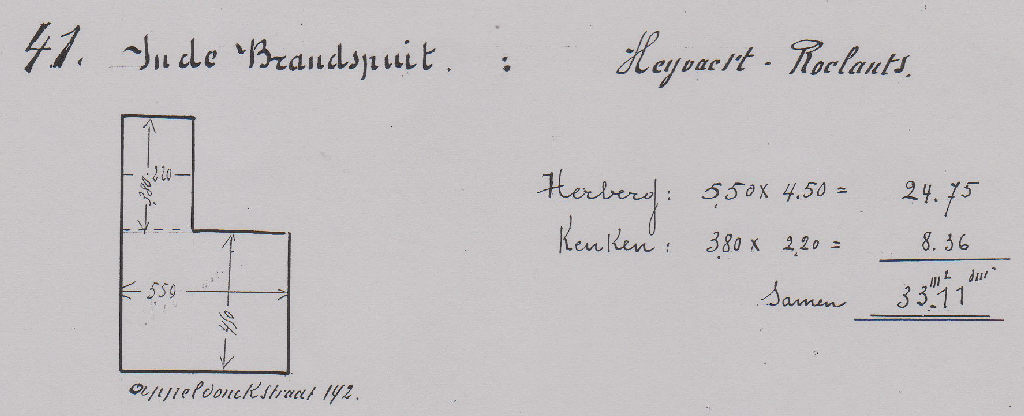 41. In de Brandspuit. : Heyvaert - Roelants.
380 220
Herberg: 5,50 x 4.50 = 24.75
Keuken: 3,80 x 2,20 = 8.36
m² dm²
Samen 33.11
550
450
Appeldonckstraat 142.